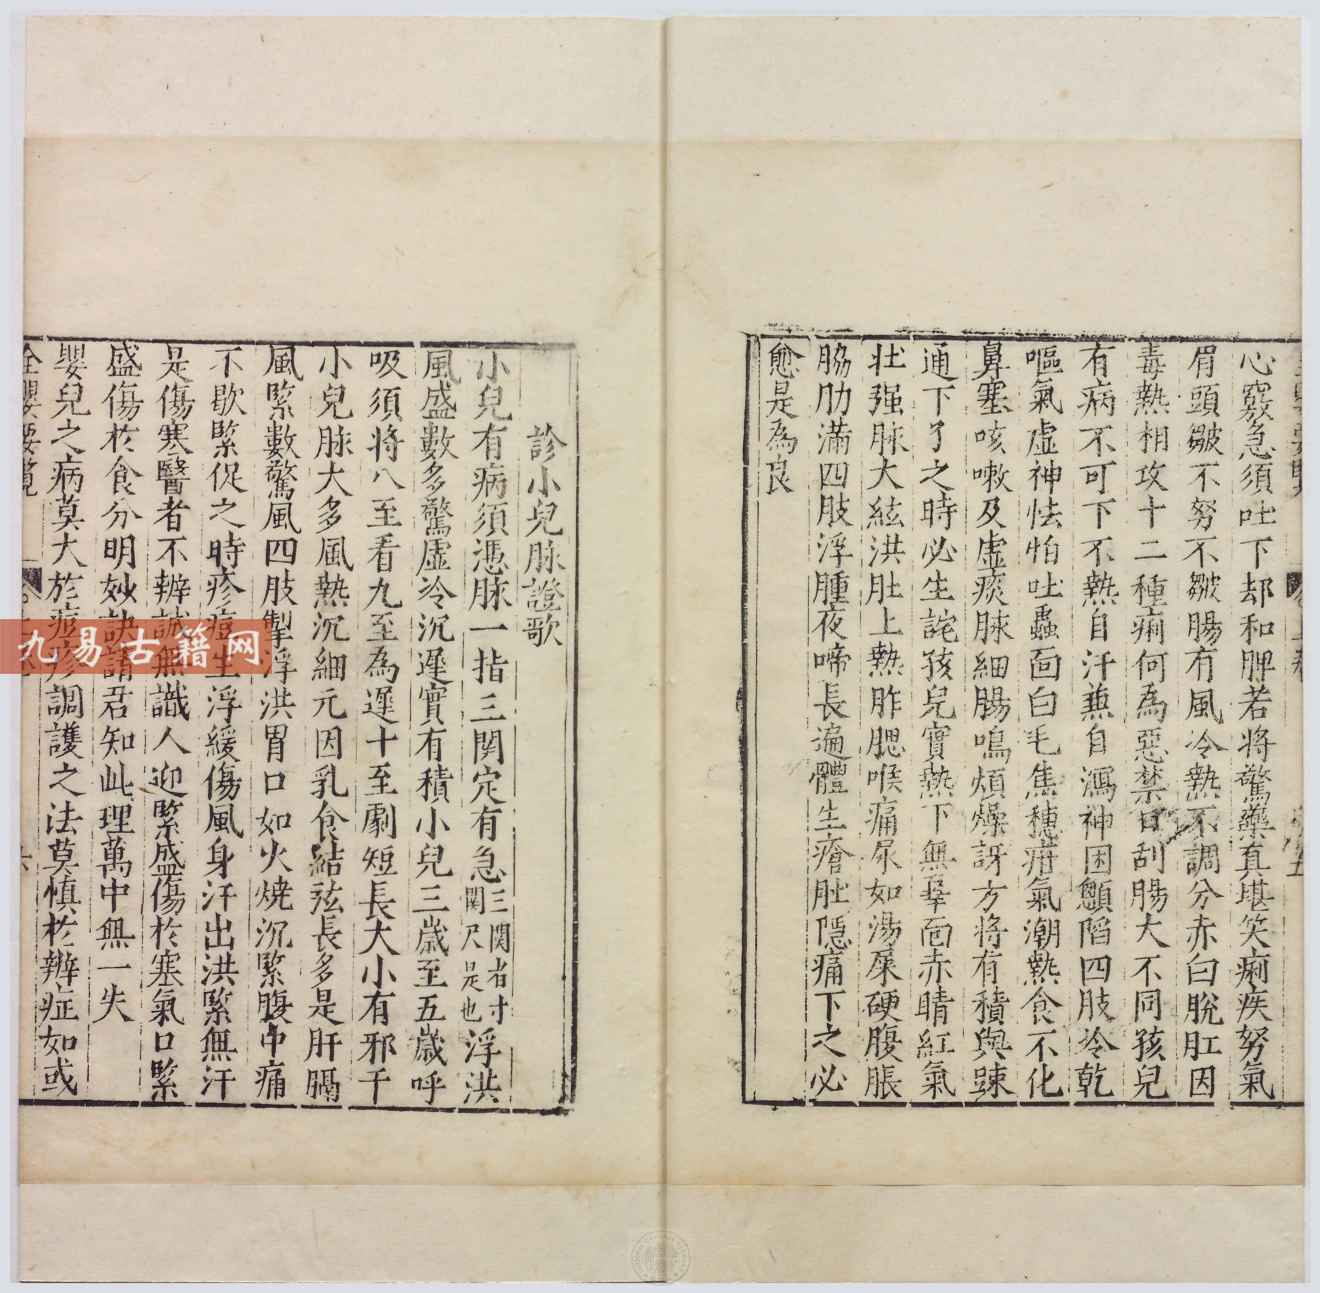 心竅急須吐下却和脾若將驚藥真堪笑痢疾努氣
眉頭皺不努不皺腸有風冷熱不調分赤白脫肛因
毒熱相攻十二種痢何為惡禁口刮腸大不同孩兒
有病不可下不熱自汗蕪自瀉神困顱陷四肢冷乾
嘔氣虛神怯怕吐蟲面白毛焦穗疳氣潮熱食不化
鼻塞咳嗽及虛痰脉細腸鳴煩燥訝方將有積與踈
通下了之時必生詫孩兒實熱下無辜面赤睛紅氣
壯强脉大絃洪肚上熱胙腮喉痛尿如湯屎硬腹脹
脇肋滿四肢浮腫夜啼長遍體生瘡肚隱痛下之必
愈是為良
診小兒脉證歌
小兒有病須憑脉一指三関定有急三関者寸関尺是也浮洪
風盛數多驚虛冷沉遲實有積小兒三歲至五歲呼
吸須將八至看九至為遲十至劇短長大小有邪干
小兒脉大多風熱沉細元因乳食結弦長多是肝膈
風緊數驚風四肢掣浮洪胃口如火燒沉緊腹中痛
不歇緊促之時疹痘生浮緩傷風身汗出洪緊無汗
是傷寒醫者不辨誠無識人迎緊盛傷於寒氣口緊
盛傷於食分明妙訣請君知此理萬中無一失
嬰兒之病莫大於痘疹調護之法莫慎於辨症如或
全嬰要覽
六
九易古籍网